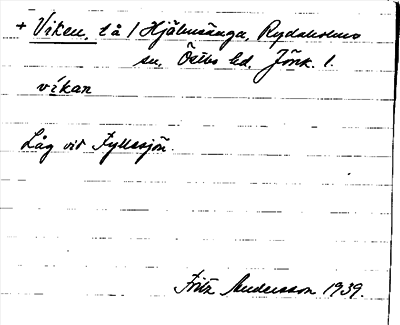 + Viken, t å 1 Hjälmsänga, Rydaholms
sn, Östbo hd. Jönk. l.
vikan
Låg vid Fyllesjön.
Fritz Andersson 1939.